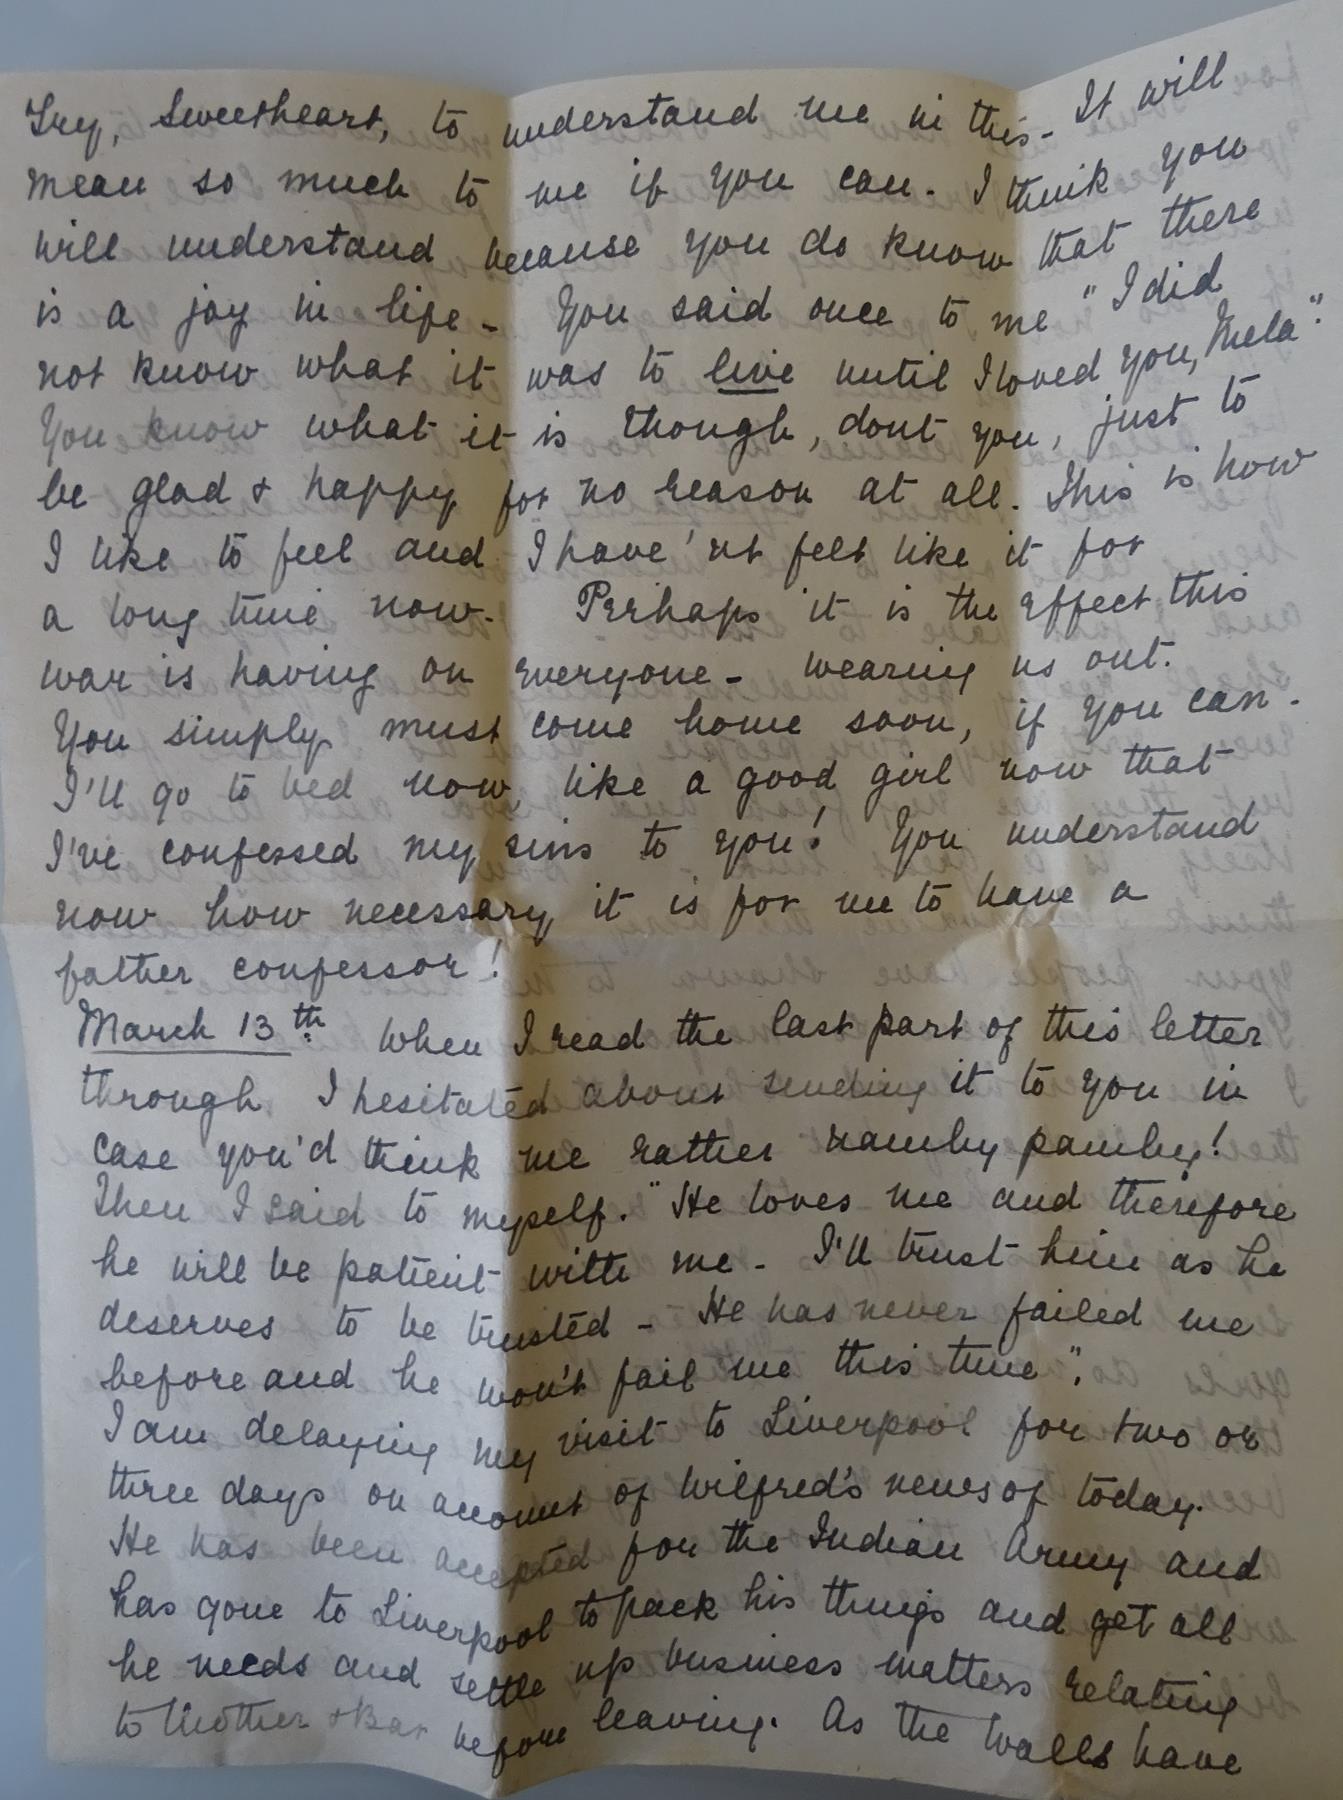 Try, Sweetheart, to understand me in this - It will
mean so much to me if you can - I think you
will understand because you do know that there
is a joy in life - You said once to me "I did
not know what it was to live until I loved you, Mela".
You know what it is though, dont you, just to
be glad & happy for no reason at all. This is how
I like to feel and I have'nt felt like it for
a long time now - Perhaps it is the effect this
war is having on everyone - wearing us out.
You simply must come home soon, if you can -
I'll go to bed now, like a good girl now that
I've confessed my sins to you! You understand
now how necessary it is for me to have a
father confessor!
March 13th When I read the last part of this letter
through I hesitated about sending it to you in
case you'd think me rather namby pamby!
Then I said to myself. "He loves me and therefore
he will be patient with me - I'll trust him as he
deserves to be trusted - He has never failed me
before and he won't fail me this time".
I am delaying my visit to Liverpool for two or
three days on account of Wilfred's news of today.
He has been accepted for the Indian Army and
has gone to Liverpool to pack his things and get all
he needs and settle up business matters relating
to Mother & Bar before leaving. As the Walls have